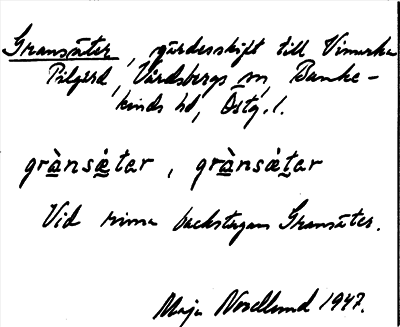 Gransäter, gärdesskift till Vimarka
Pilgård, Vårdsbergs sn, Banke-
kinds hd, Östg. l.
grànsǽtar, grànsǽtar
Vid rivna backstugan Gransäter.
Maja Norellund 1947.